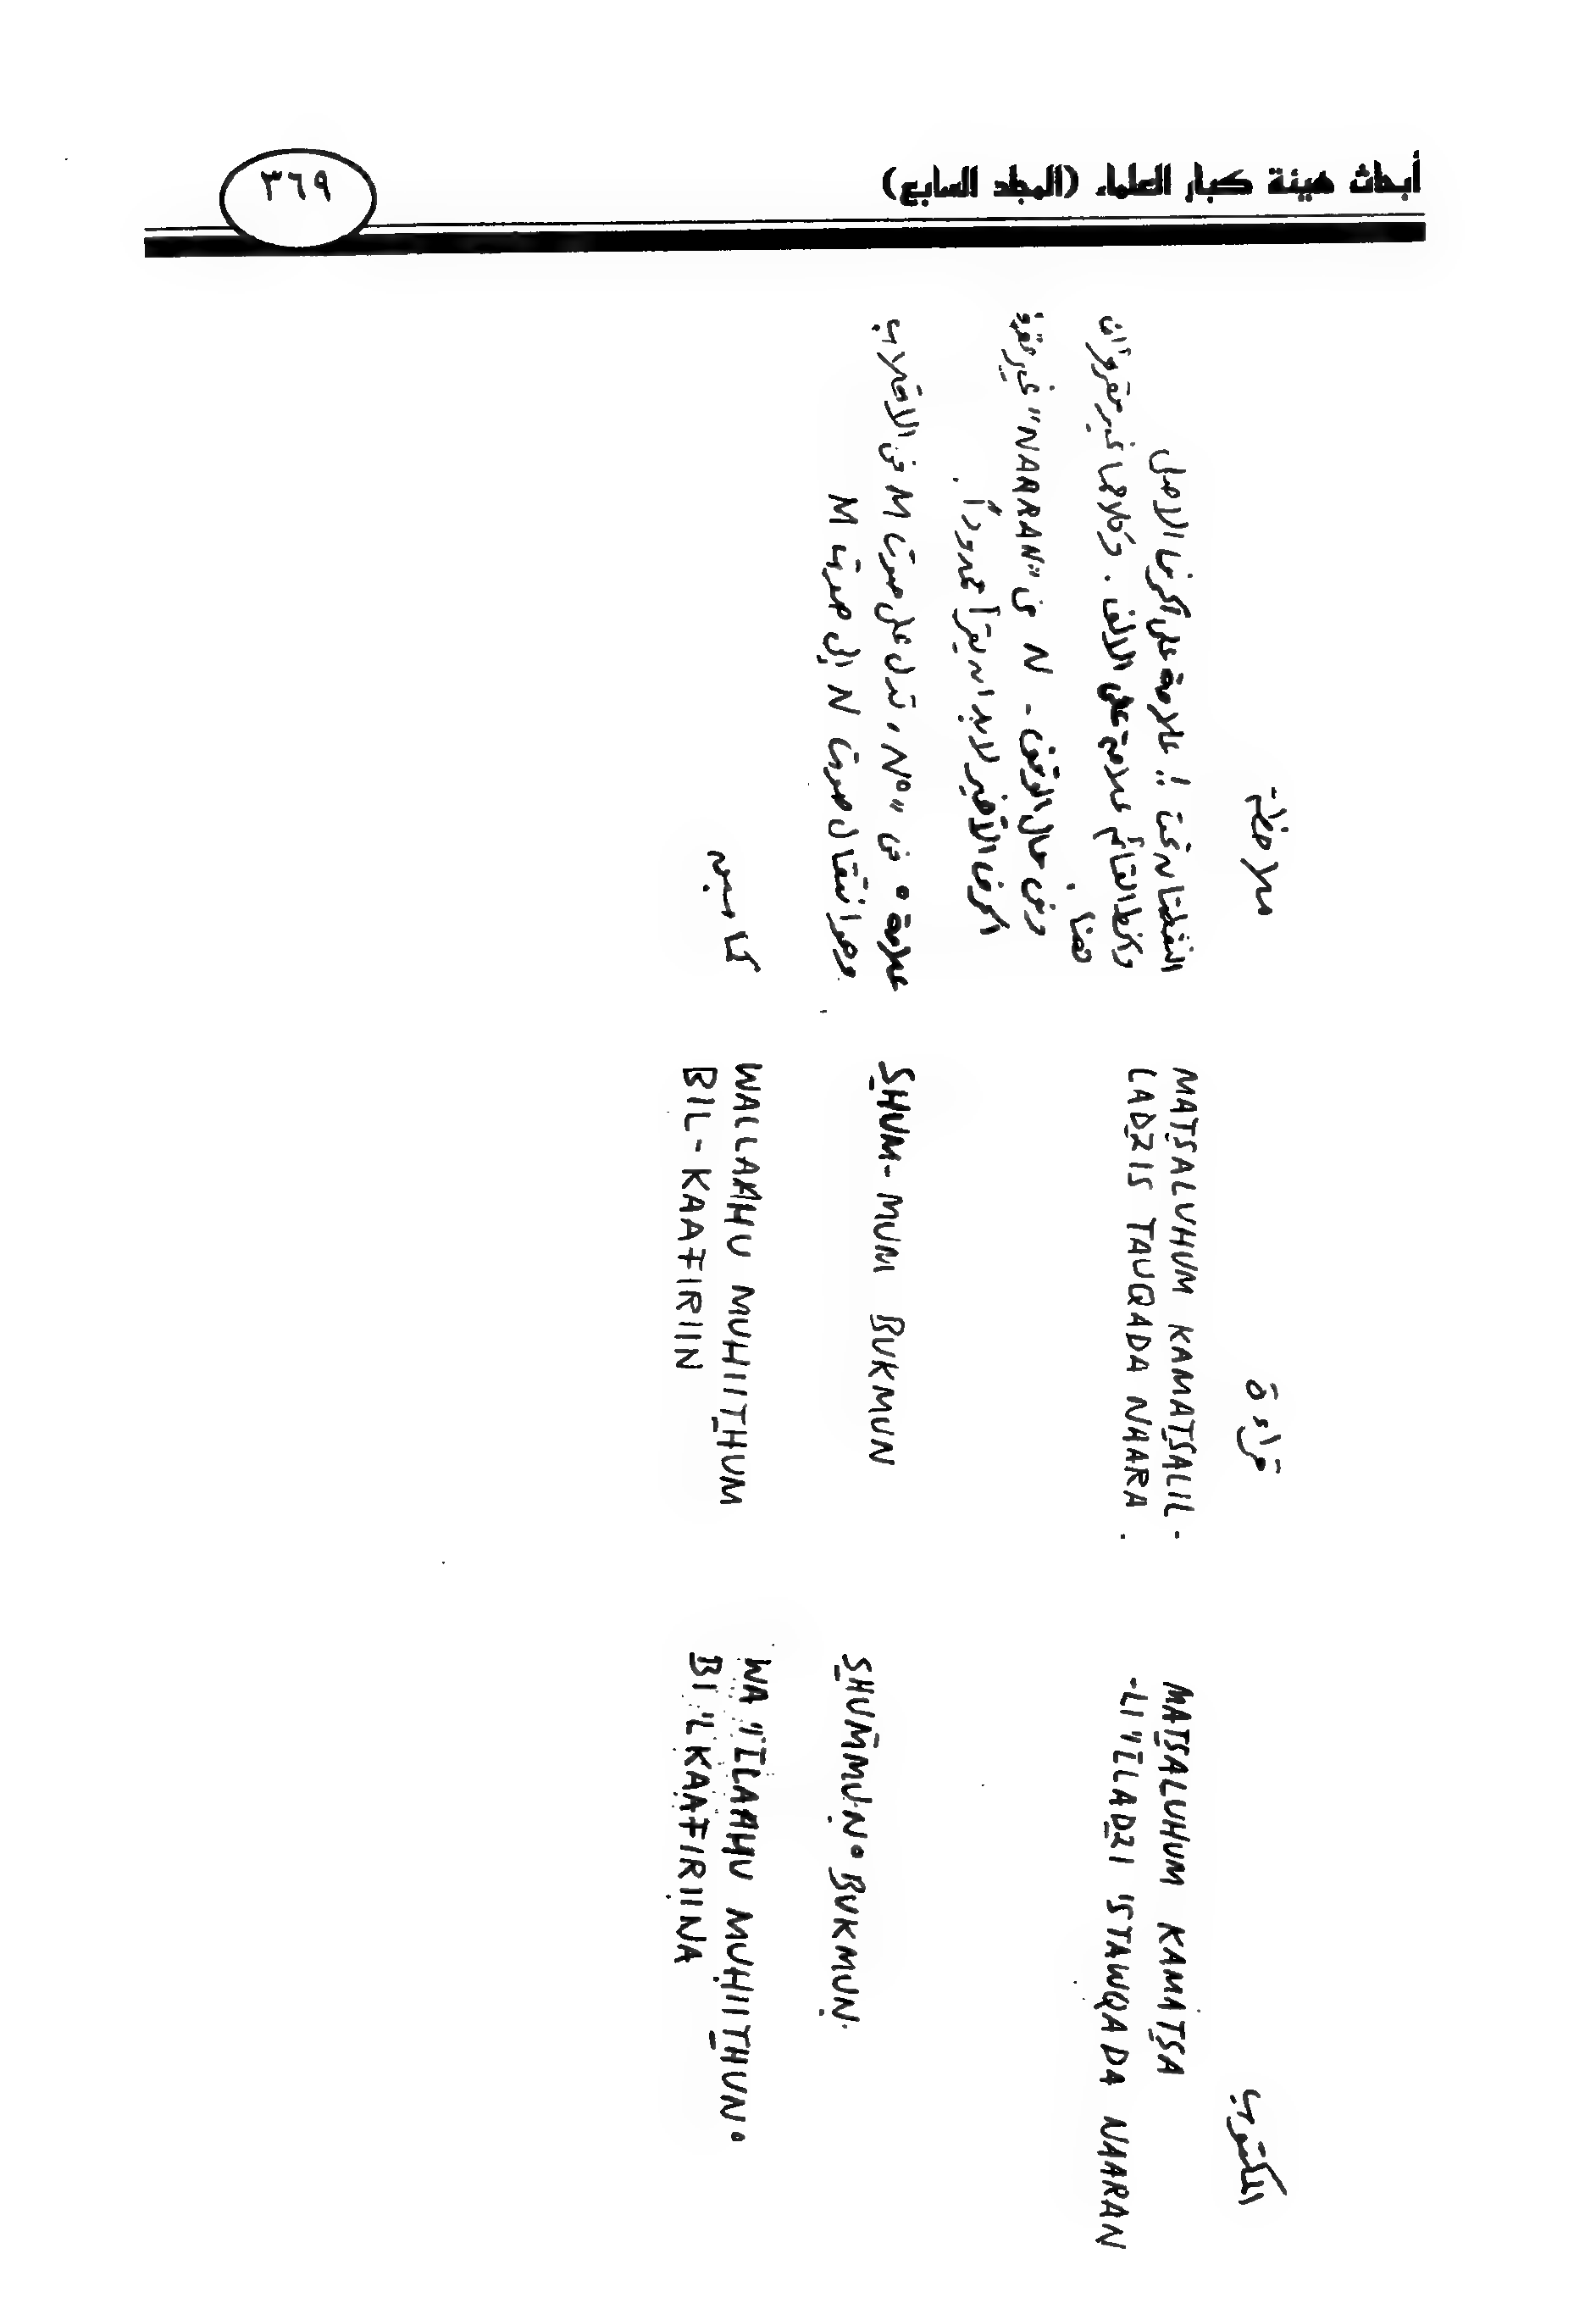 أبحاث هيئة كبار العلماء (المجلد السابع)
٣٦٩
المكتوب
قراءة
ملاحظة
MATSALUHUM KAMATSA
-LI 'L̄LADZI 'STAWQADA NAARAN
MATSALUHUM KAMATSALIL-
LADZIS TAUQADA NAARA .
النقطتان تحت !! علامة على الحرف الأصل
والخط القائم علامة على الألف . وكلاهما غير مقروءان
هنا .
وفى حال الوقف - N فى "NAARAN" غير مقروء
الحرف الأخير لابد ان يقرأ ممدوداً .
SHUM̄MUN° BUKMUN
SHUM-MUM BUKMUN
علامة ° فى "N°" ، تدل على صوت M فى الاقلاب
وهو انتقال صوت N إلى صوت M
WA 'L̄LAAHU MUHIITHUN°
BI 'LKAAFIRIINA
WALLAAHU MUHIITHUM
BIL-KAAFIRIIN
كما سبق